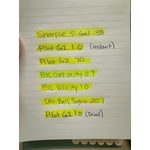 Sharpie S-Gel .38
Pilot G2 1.0 (instant)
Pilot G2 .70
BIC Gelocity 0.7
BIC Velocity 1.0
Uni Ball Signo 207
Pilot G2 1.0 (Dried)